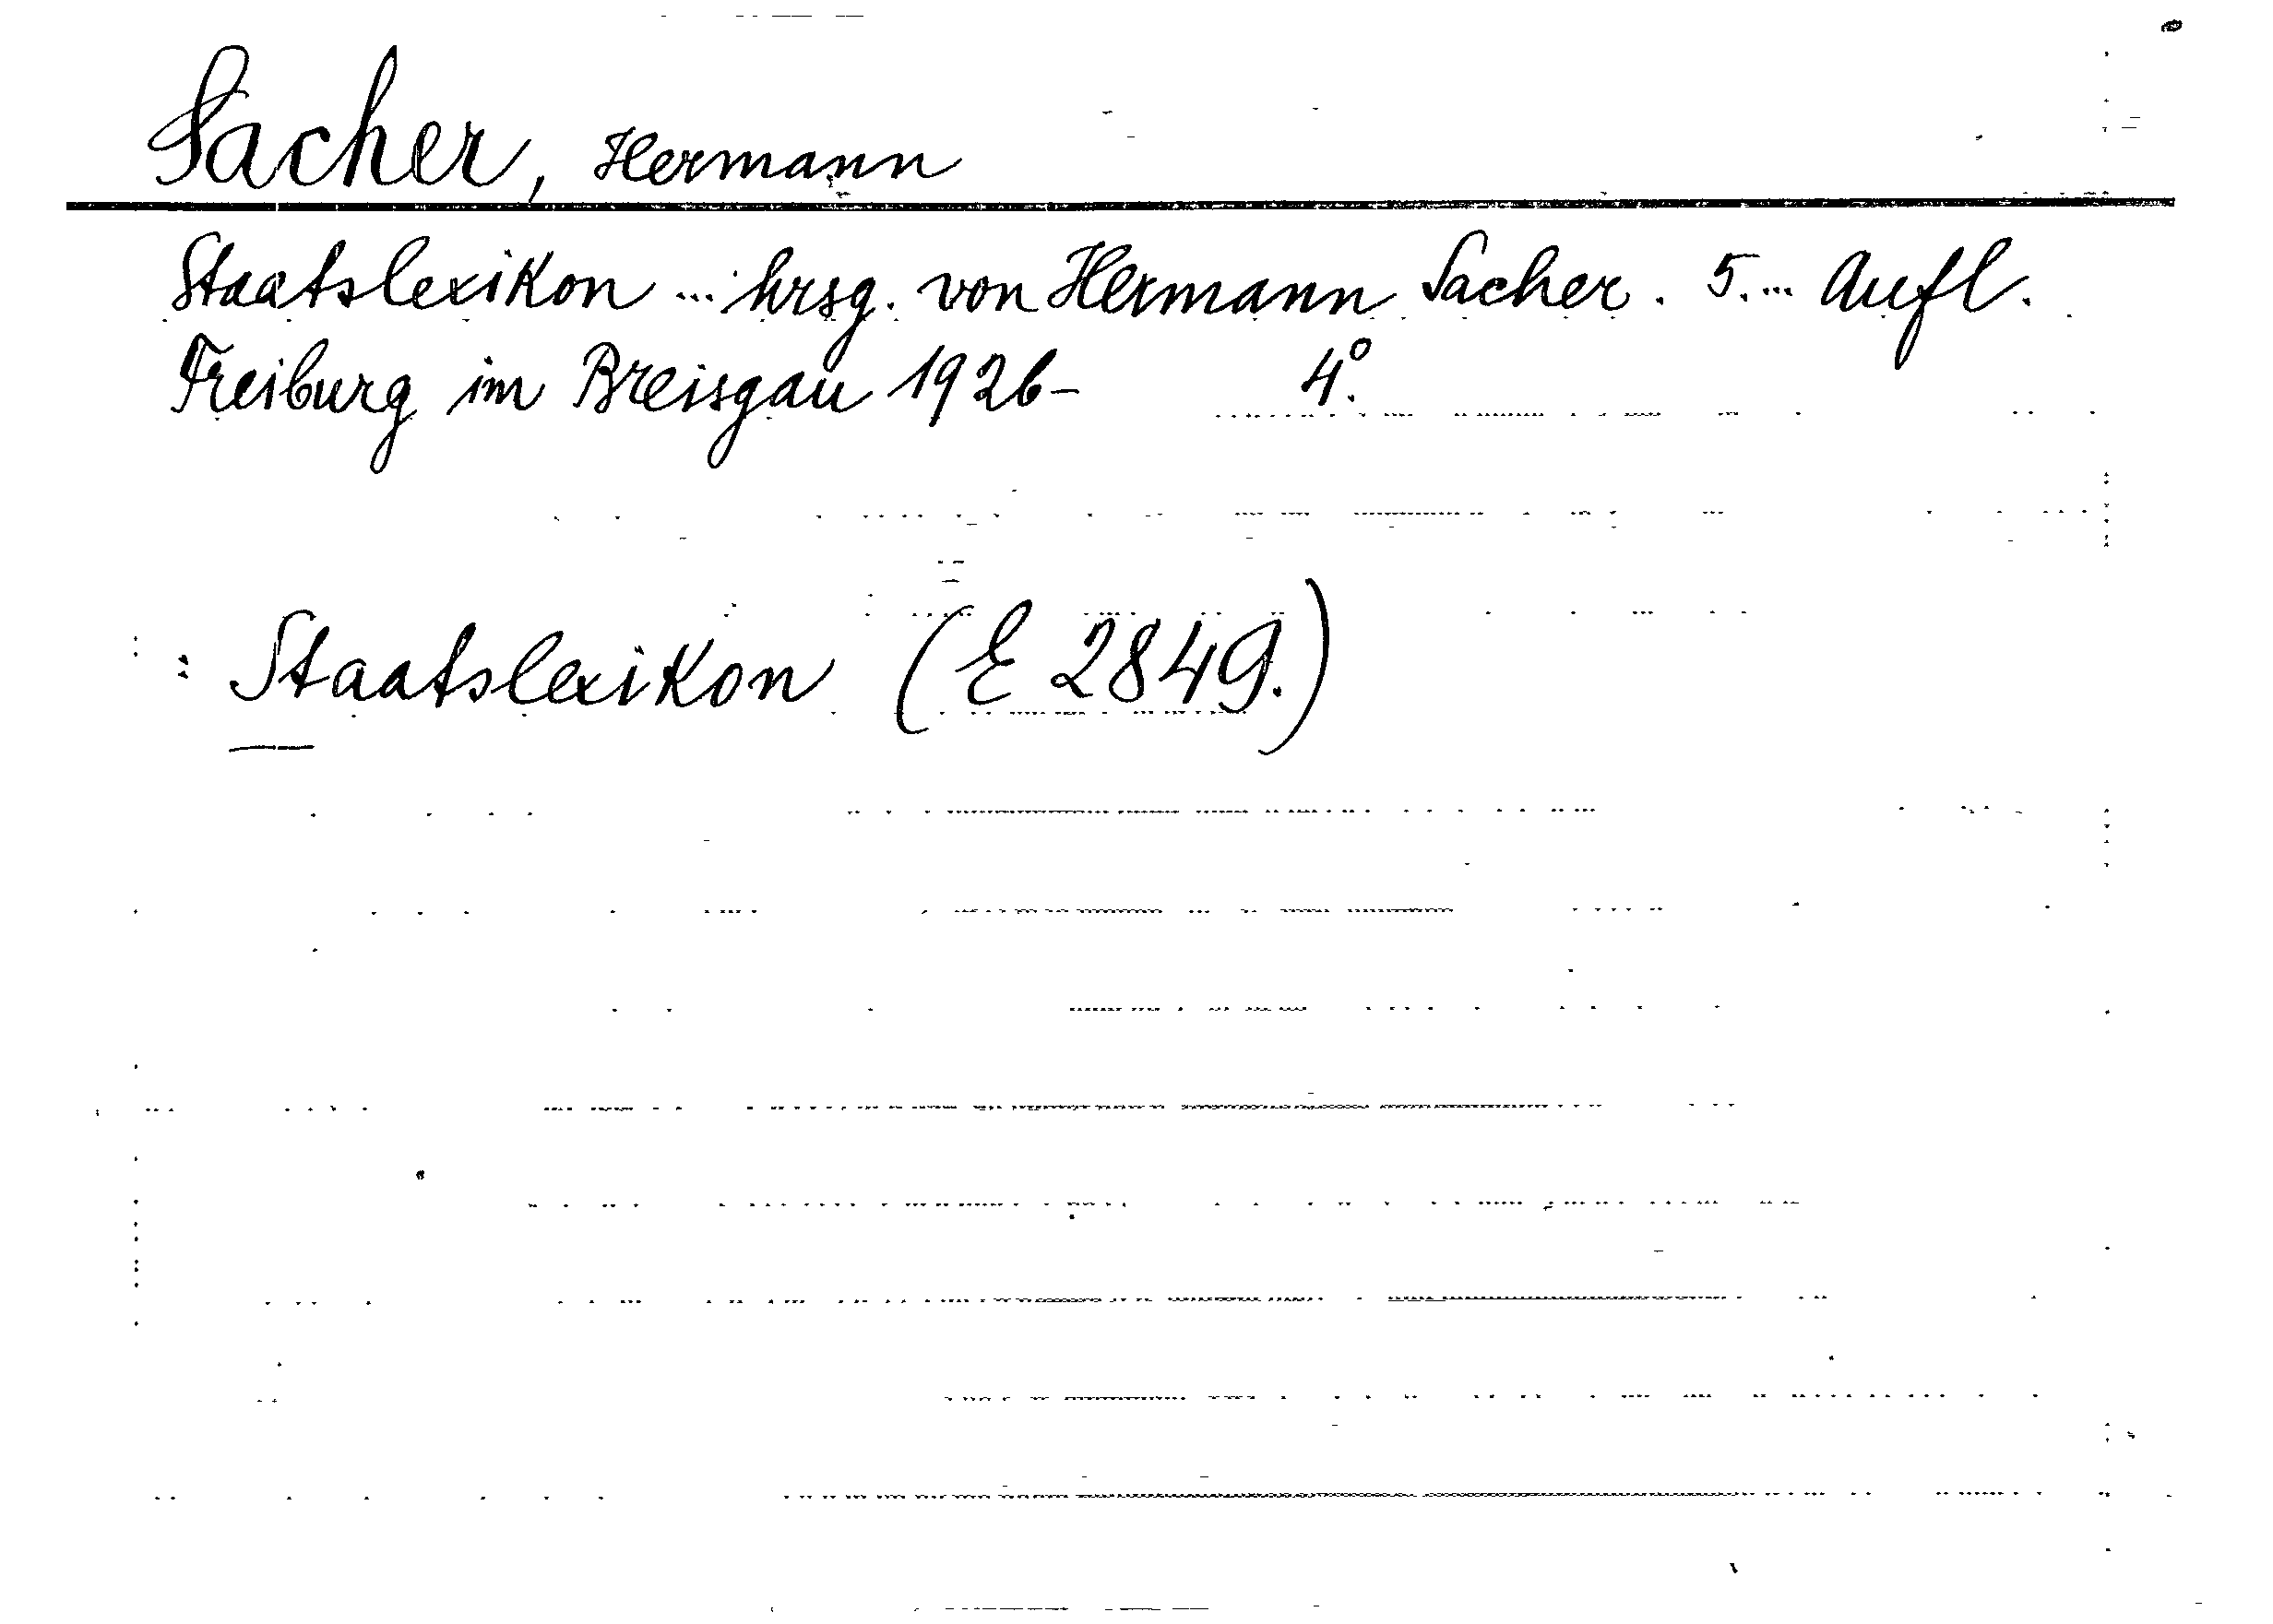 Sacher, Hermann
Staatslexikon ... hrsg. von Hermann Sacher. 5. ... Aufl.
Freiburg im Breisgau 1926- 4°.
: Staatslexikon (E 2849.)